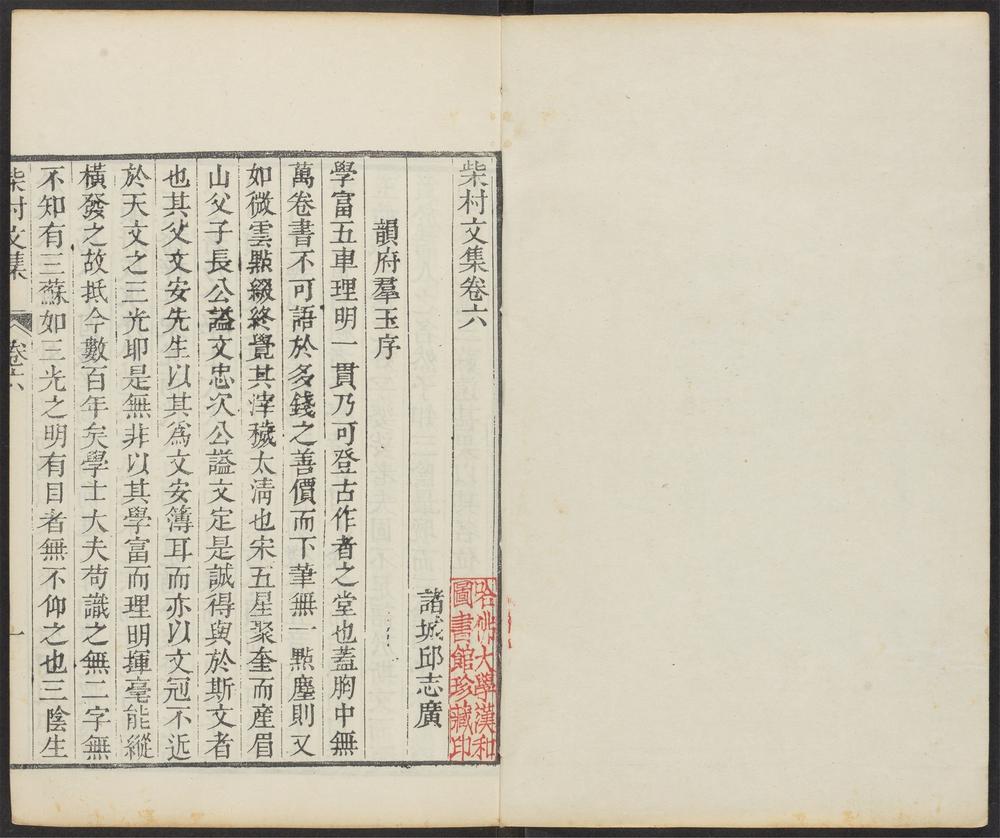 柴村文集卷六
諸城邱志廣
韻府羣玉序
學富五車理明一貫乃可登古作者之堂也蓋胸中無
萬卷書不可語於多錢之善價而下筆無一點塵則又
如微雲點綴終覺其滓穢太淸也宋五星聚奎而産眉
山父子長公謚文忠次公謚文定是誠得與於斯文者
也其父文安先生以其爲文安簿耳而亦以文冠不近
於天文之三光耶是無非以其學富而理明揮毫能縱
橫發之故抵今數百年矣學士大夫苟識之無二字無
不知有三蘇如三光之明有目者無不仰之也三陰生
柴村文集
卷六
一
哈佛大學漢和
圖書館珍藏印